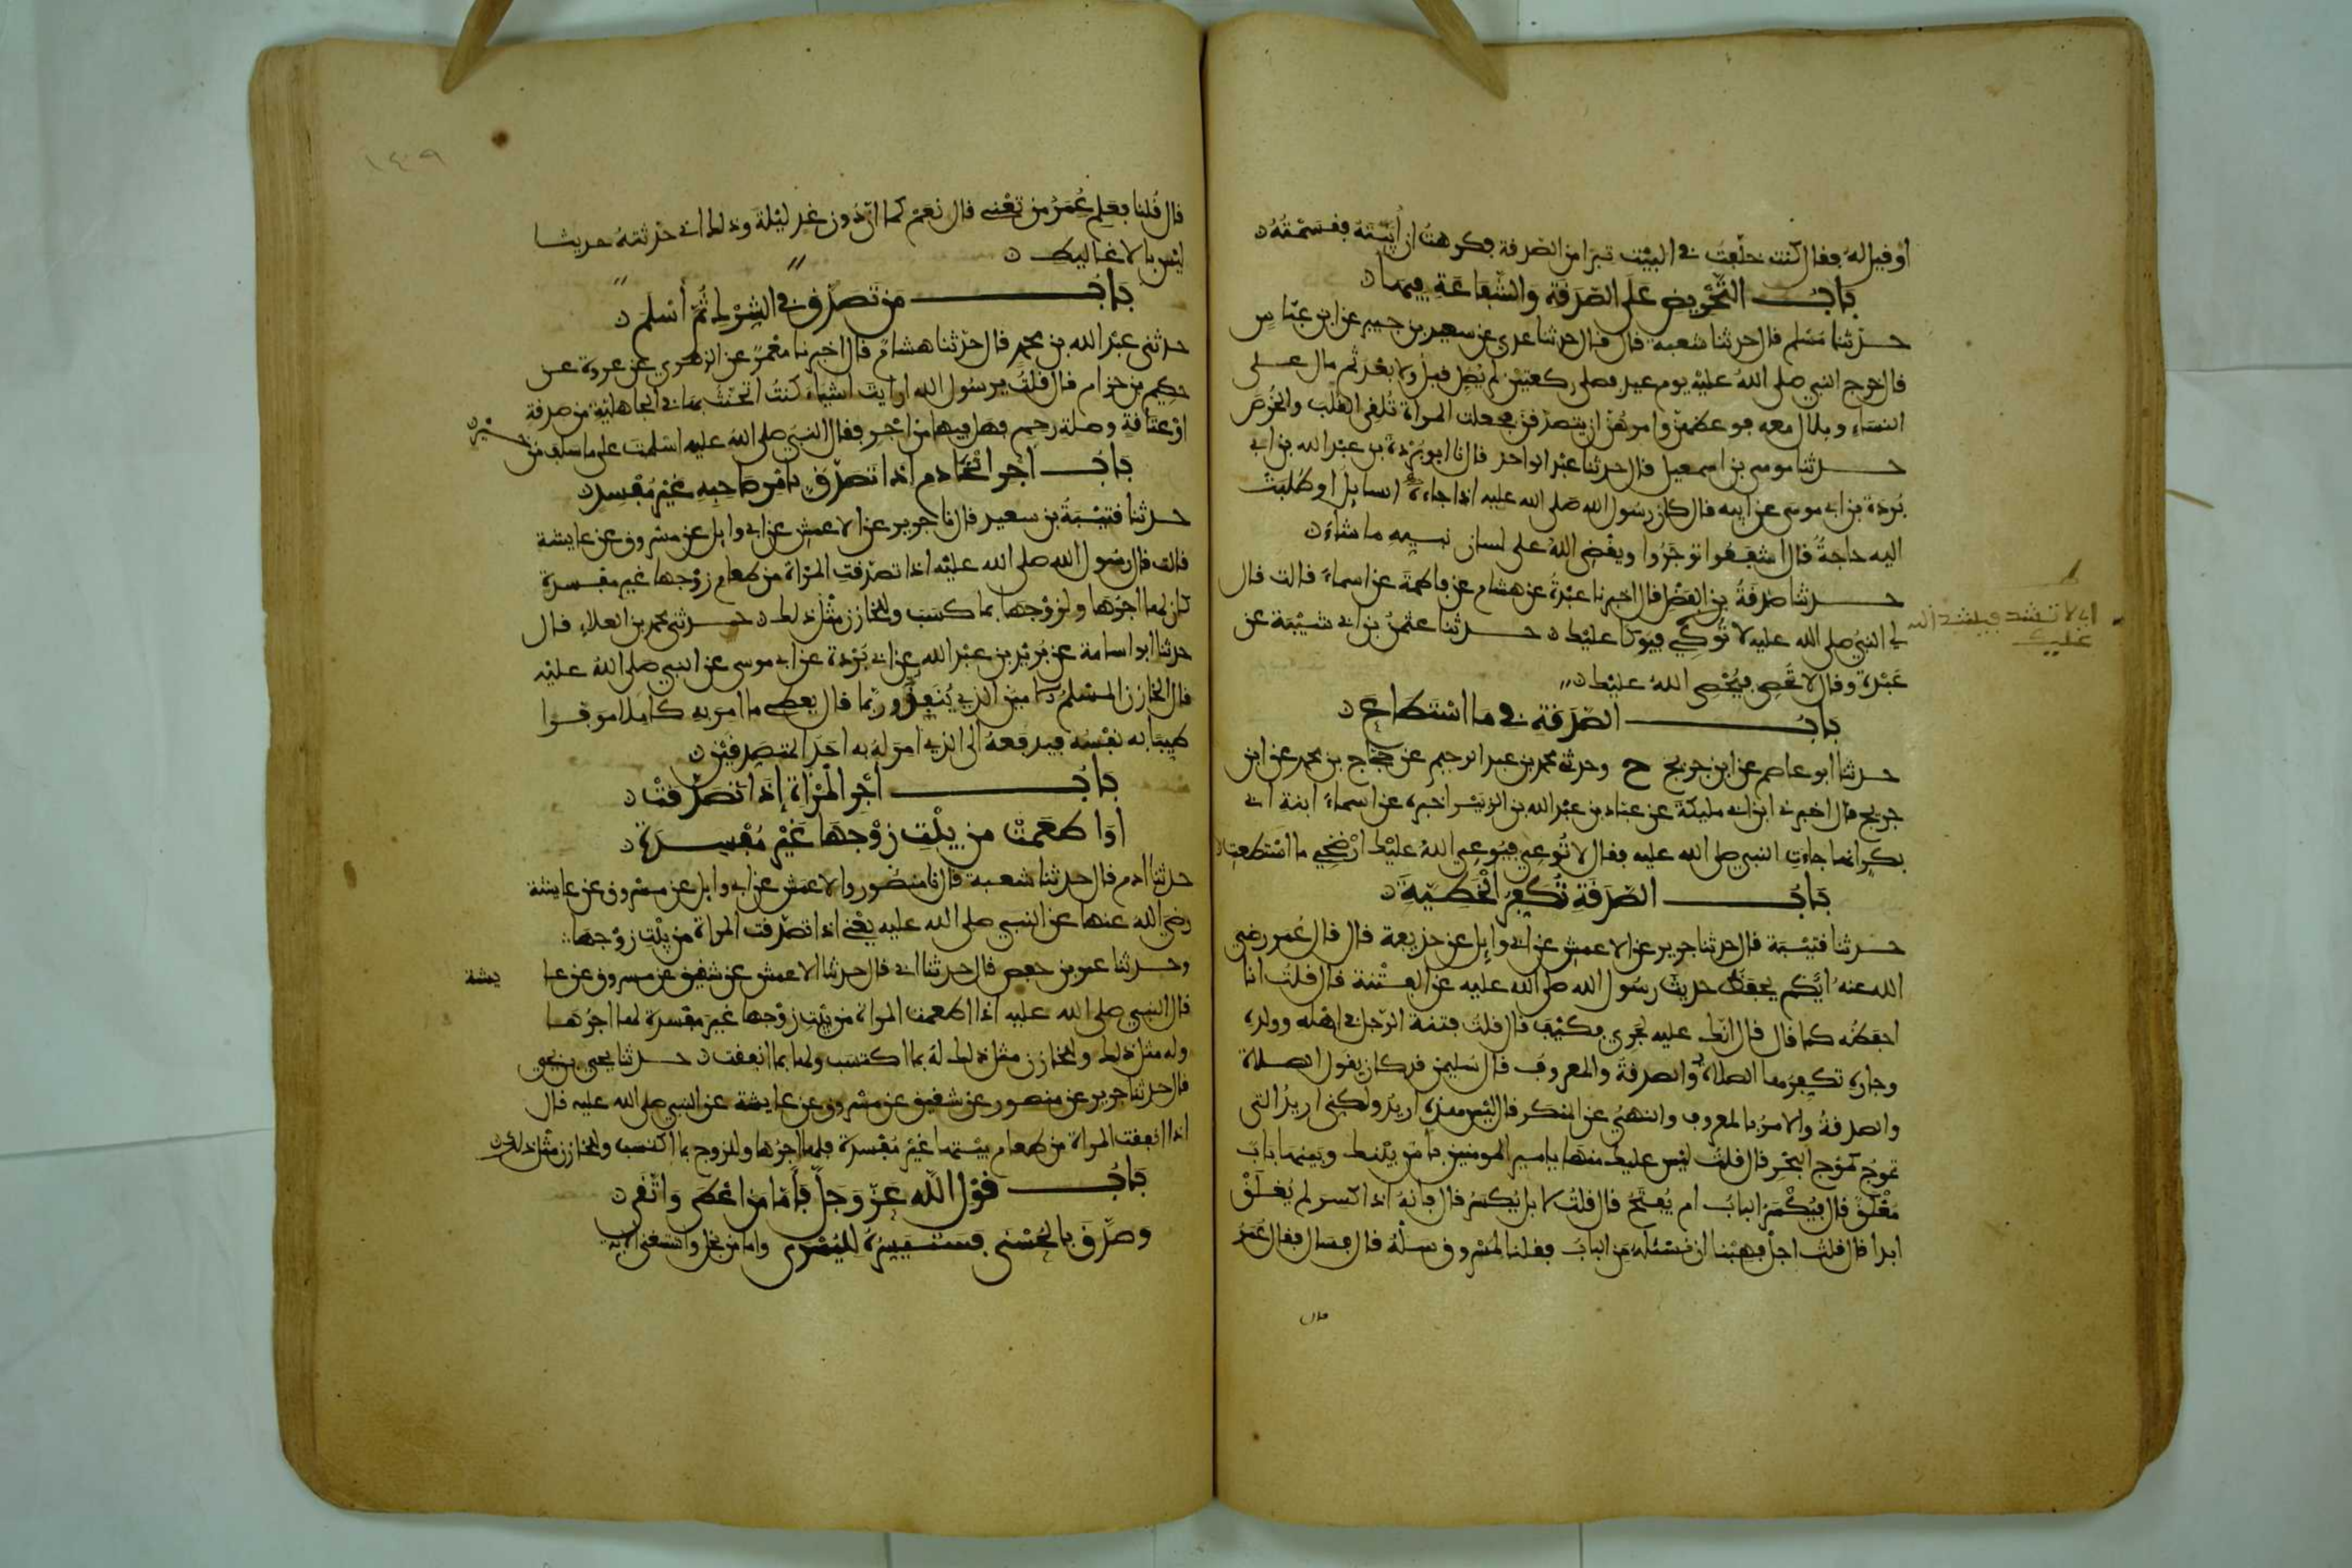 او قيل له فقال كنت خلفت في البيت تبرا من الصدقة فكرهت ان أبيته فقسمته
باب التحريض على الصدقة والشفاعة فيها
حدثنا مسلم قال حدثنا شعبة قال قال حدثنا عدي عن سعيد بن جبير عن ابن عباس
قال خرج النبي صلى الله عليه يوم عيد فصلى ركعتين لم يصل قبل ولا بعد ثم مال على
النساء وبلال معه فوعظهن وامرهن ان يتصدقن فجعلت المراة تلقي القلب والخرص
حدثنا موسى بن اسمعيل قال حدثنا عبد الواحد قال نا ابو بردة بن عبد الله بن ابي
بردة بن ابي موسى عن ابيه قال كان رسول الله صلى الله عليه اذا جاءه السايل او طلبت
اليه حاجة قال اشفعوا توجروا ويقضي الله على لسان نبيه ما شاء
حدثنا صدقة بن الفضل قال اخبرنا عبدة عن هشام عن فاطمة عن اسماء قالت قال
لي النبي صلى الله عليه لا توكي فيوكا عليك حدثنا عثمن بن ابي شيبة عن
عبدة وقال لا تحصي فيحصي الله عليك
اي لا تشد فيشد الله
عليك
باب الصدقة في ما استطاع
حدثنا ابو عاصم عن ابن جريج ح وحدثني محمد بن عبد الرحيم عن حجاج بن محمد عن ابن
جريج قال اخبرني ابن ابي مليكة عن عباد بن عبد الله بن الزبير اخبره عن اسماء ابنة ابي
بكر انها جاءت النبي صلى الله عليه فقال لا توعي فيوعي الله عليك ارضخي ما استطعت
باب الصدقة تكفر الخطية
حدثنا قتيبة قال حدثنا جرير عن الاعمش عن ابي وايل عن حذيفة قال قال عمر رضي
الله عنه ايكم يحفظ حديث رسول الله صلى الله عليه عن الفتنة قال قلت انا
احفظه كما قال قال انك عليه لجري فكيف قال قلت فتنة الرجل في اهله وولده
وجاره تكفرها الصلاة والصدقة والمعروف قال سليمن قد كان يقول الصلاة
والصدقة والامر بالمعروف والنهي عن المنكر قال ليس هذه اريد ولكني اريد التي
تموج كموج البحر قال قلت ليس عليك منها يا امير المومنين باس بينك وبينها باب
مغلق قال فيكسر الباب ام يفتح قال قلت لا بل يكسر قال فانه اذا كسر لم يغلق
ابدا قال قلت اجل فهبنا ان نسئله من الباب فقلنا لمسروق سله قال فسال فقال عمر
قال
١٤٠٩
قال قلنا فعلم عمر من تعني قال نعم كما ان دون غد ليلة وذلك اني حدثته حديثا
ليس بالاغاليط
باب من تصدق في الشرك ثم أسلم
حدثني عبد الله بن محمد قال حدثنا هشام قال اخبرنا معمر عن الزهري عن عروة عن
حكيم بن حزام قال قلت يرسول الله ارايت اشياء كنت اتحنث بها في الجاهلية من صدقة
او عتاقة وصلة رحم فهل فيها من اجر فقال النبي صلى الله عليه اسلمت على ما سلف من خير
باب أجر الخادم اذا تصدق بامر صاحبه غير مفسد
حدثنا قتيبة بن سعيد قال نا جرير عن الاعمش عن ابي وايل عن مسروق عن عايشة
قالت قال رسول الله صلى الله عليه اذا تصدقت المراة من طعام زوجها غير مفسدة
كان لها اجرها ولزوجها بما كسب وللخازن مثل ذلك حدثني محمد بن العلاء قال
حدثنا ابو اسامة عن بريد بن عبد الله عن ابي بردة عن ابي موسى عن النبي صلى الله عليه
قال الخازن المسلم الامين الذي ينفق وربما قال يعطي ما امر به كاملا موفرا
طيبا به نفسه فيدفعه الى الذي امر له به احد المتصدقين
باب أجر المراة إذا تصدقت
اوا طعمت من بيت زوجها غير مفسدة
حدثنا ادم قال حدثنا شعبة قال نا منصور والاعمش عن ابي وايل عن مسروق عن عايشة
رضي الله عنها عن النبي صلى الله عليه يعني اذا تصدقت المراة من بيت زوجها
وحدثنا عمر بن حفص قال حدثنا ابي قال حدثنا الاعمش عن شقيق عن مسروق عن عا يشة
قال النبي صلى الله عليه اذا اطعمت المراة من بيت زوجها غير مفسدة لها اجرها
وله مثل ذلك وللخازن مثل ذلك له بما اكتسب ولها بما انفقت حدثنا يحيى بن يحيى
قال حدثنا جرير عن منصور عن شقيق عن مسروق عن عايشة عن النبي صلى الله عليه قال
اذا انفقت المراة من طعام بيتها غير مفسدة فلها اجرها وللزوج بما اكتسب وللخازن مثل ذلك
باب قول الله عز وجل فأما من اعطى واتقى
وصدق بالحسنى فسنيسره لليسرى واما من بخل واستغنى الاية